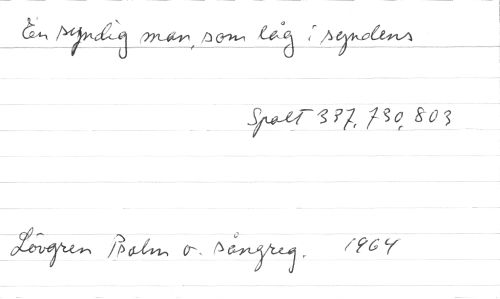 En syndig man, som låg i syndens
Spalt 337, 730, 803
Lövgren Psalm o. sångreg. 1964